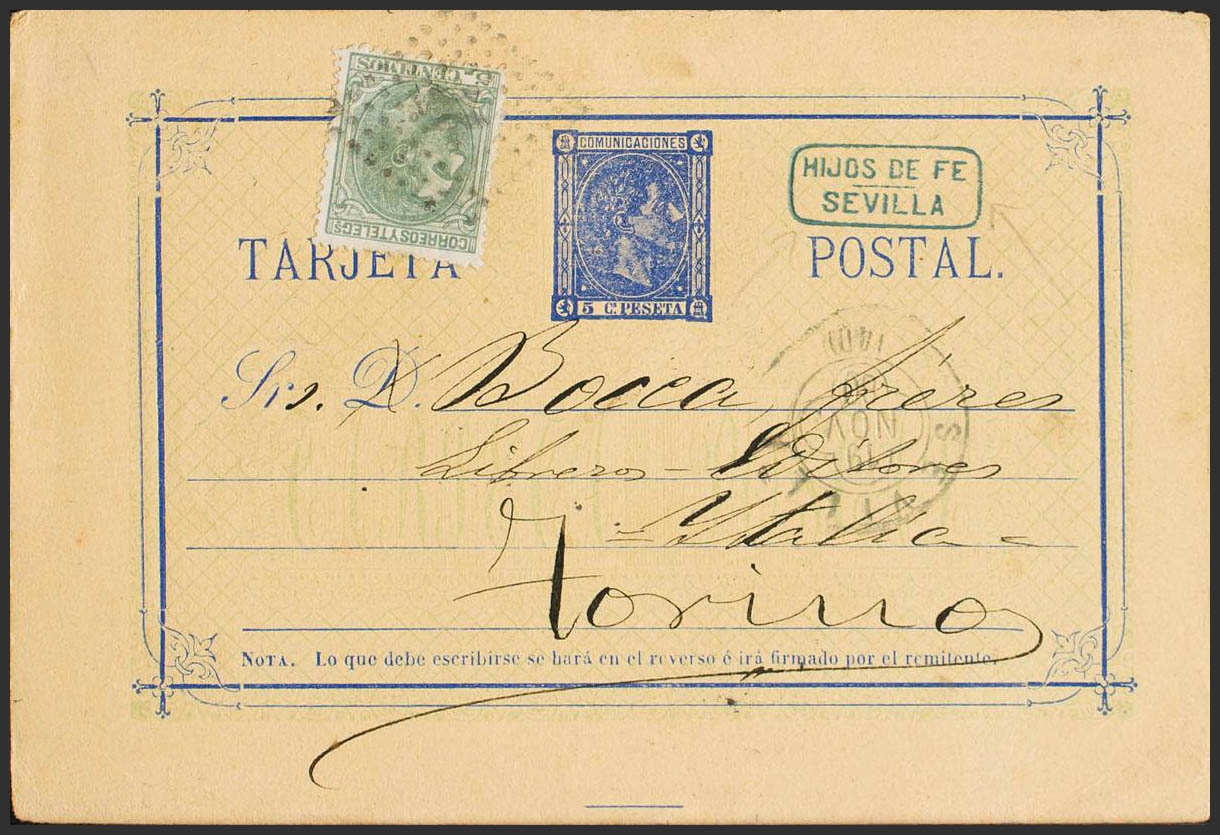 5. CENTIMOS
CORREOS Y TELEGS
COMUNICACIONES
5 C. PESETA
HIJOS DE FE
SEVILLA
TARJETA POSTAL.
Srs. D. Bocca, frères
Libreros - Editores
- Ytalia -
Torino
NOTA. Lo que debe escribirse se hará en el reverso é irá firmado por el remitente.
NOV